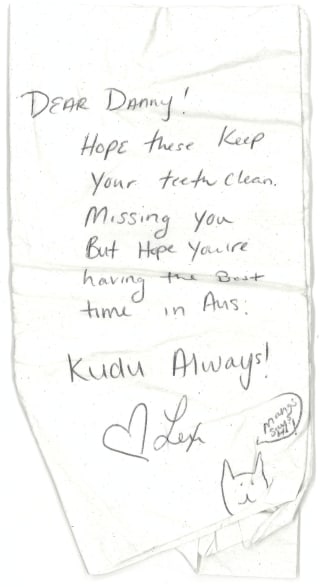 DEAR Danny!
HOPE these Keep
Your teeth clean.
Missing you
But Hope You're
having the Best
time in Aus.
Kudu Always!
Lex
says
HI!